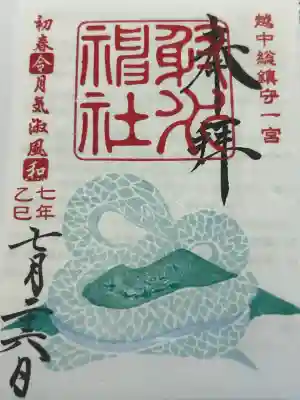 越中総鎮守一宮
奉拝
射水
神社
初春令月気淑風和
七年
乙巳
七月二六日